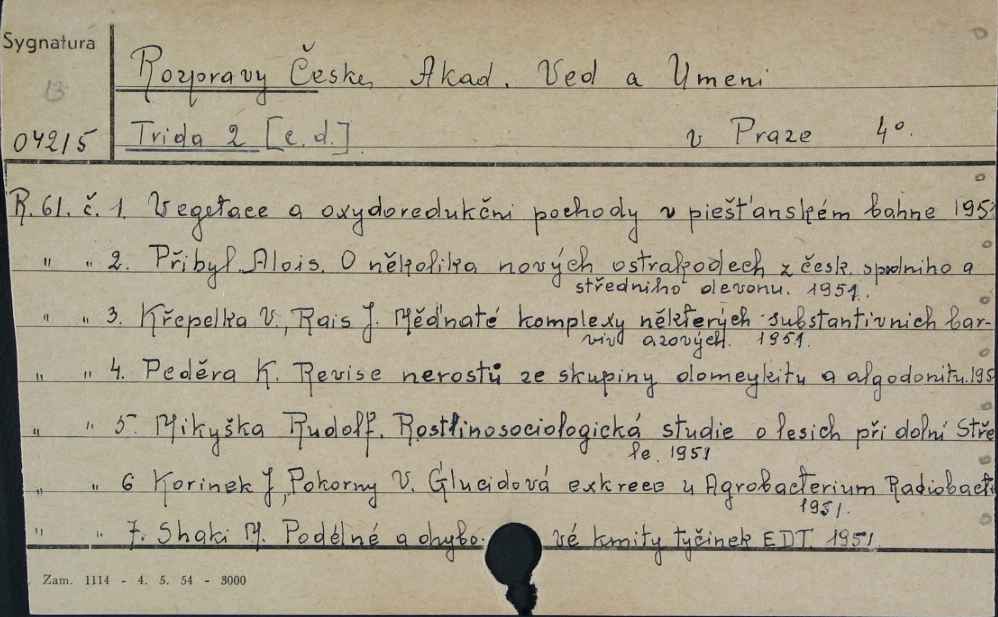 Sygnatura
13
Rozpravy České Akad. Ved a Umeni
04215 Trida 2 [c.d.] v Praze 4°.
R. 61. č. 1. Vegetace a oxydoredukčni pochody v piešťanském bahne 195
" " 2. Přibyl Alois. O několika nových ostrakodech z česk. spodniho a
středniho devonu. 1951.
" " 3. Křepelka V., Rais J. Měďnaté komplexy některých substantivnich bar-
viv azových. 1951.
" " 4. Peděra K. Revise nerostů ze skupiny domeykitu a algodonitu. 195
" " 5. Mikyška Rudolf. Rostlinosociologická studie o lesich při dolní Stře
le. 1951
" " 6 Korinek J., Pokorny V. Glucidová exkrece u Agrobacterium Radiobact
1951.
" " 7. Shaki M. Podélné a ohybo vé kmity tyčinek EDT. 1951
Zam. 1114 - 4. 5. 54 - 3000